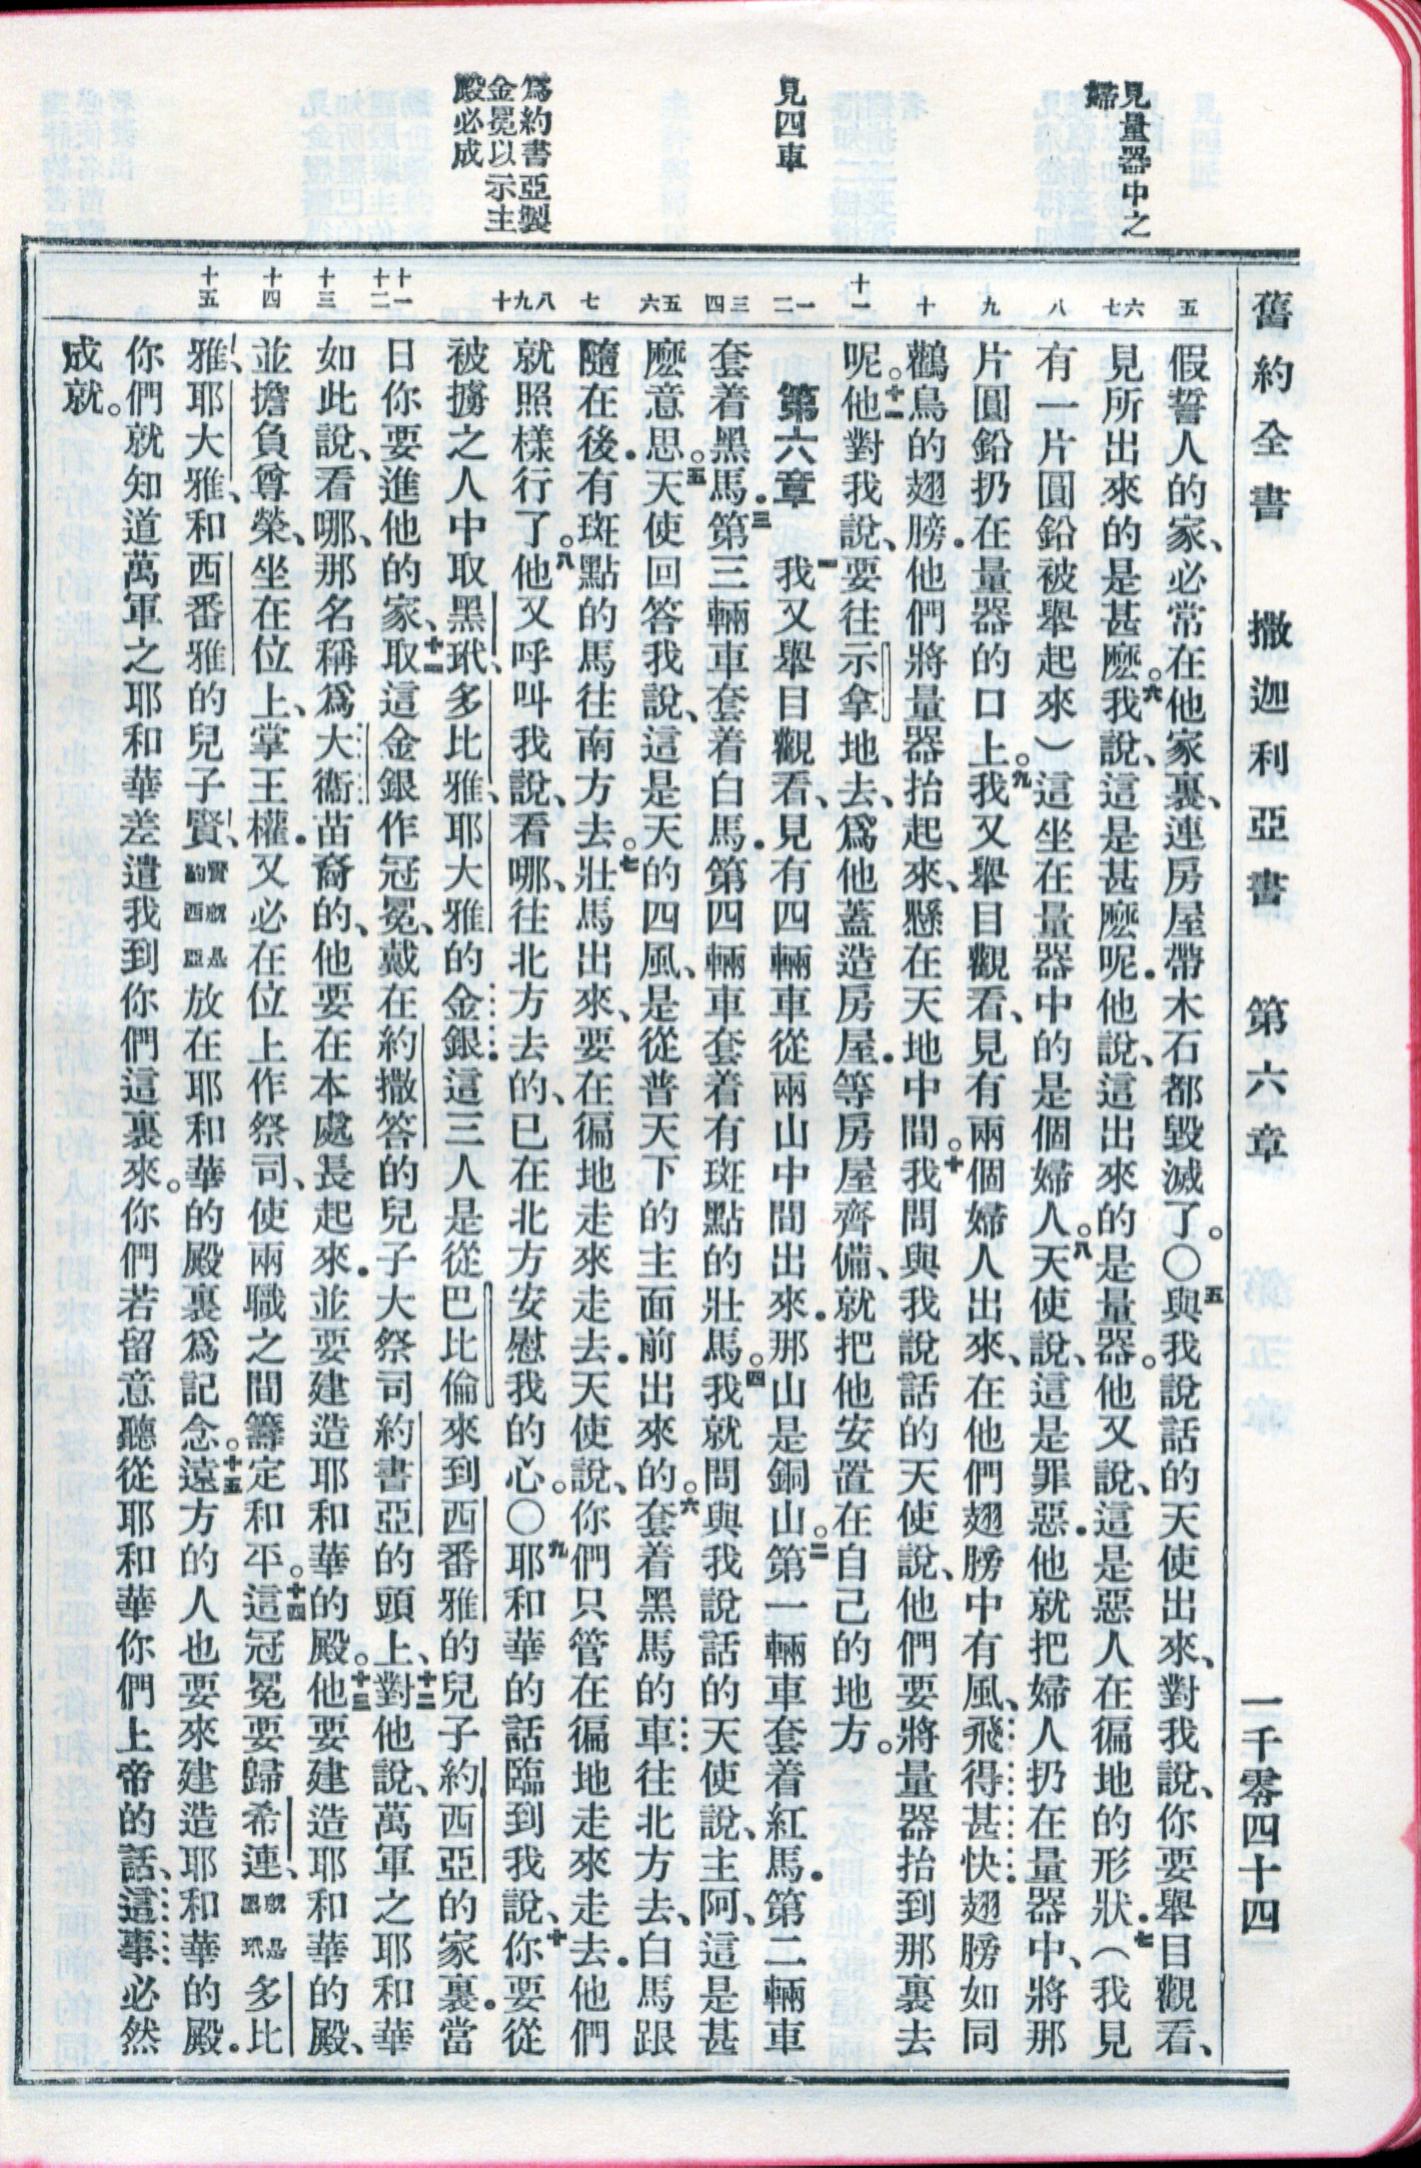 見量器中之
婦
見四車
爲約書亞製
金冕以示主
殿必成
舊約全書 撒迦利亞書 第六章 一千零四十四
五
六 七
八
九
十
十一
一 二
三 四
五 六
七
八 九 十
十一 十二
十三
十四
十五
假誓人的家、必常在他家裏、連房屋帶木石都毀滅了。〇五與我說話的天使出來、對我說、你要舉目觀看、
見所出來的是甚麽。六我說、這是甚麽呢．他說、這出來的是量器。他又說、這是惡人在徧地的形狀．七（我見
有一片圓鉛被舉起來）這坐在量器中的是個婦人。八天使說、這是罪惡．他就把婦人扔在量器中、將那
片圓鉛扔在量器的口上。九我又舉目觀看、見有兩個婦人出來、在他們翅膀中有風、飛得甚快翅膀如同
鸛鳥的翅膀．他們將量器抬起來、懸在天地中間。十我問與我說話的天使說、他們要將量器抬到那裏去
呢。十一他對我說、要往示拿地去、爲他蓋造房屋．等房屋齊備、就把他安置在自己的地方。
第六章 一我又舉目觀看、見有四輛車從兩山中間出來．那山是銅山。二第一輛車套着紅馬．第二輛車
套着黑馬．三第三輛車套着白馬．第四輛車套着有斑點的壯馬。四我就問與我說話的天使說、主阿、這是甚
麽意思。五天使回答我說、這是天的四風、是從普天下的主面前出來的。六套着黑馬的車往北方去、白馬跟
隨在後．有斑點的馬往南方去。七壯馬出來、要在徧地走來走去．天使說、你們只管在徧地走來走去．他們
就照樣行了。八他又呼叫我說、看哪、往北方去的、已在北方安慰我的心。〇九耶和華的話臨到我說、十你要從
被擄之人中取黑玳、多比雅、耶大雅的金銀．這三人是從巴比倫來到西番雅的兒子約西亞的家裏．當
日你要進他的家、十一取這金銀作冠冕、戴在約撒答的兒子大祭司約書亞的頭上、十二對他說、萬軍之耶和華
如此說、看哪、那名稱爲大衛苗裔的、他要在本處長起來．並要建造耶和華的殿。十三他要建造耶和華的殿、
並擔負尊榮、坐在位上、掌王權．又必在位上作祭司、使兩職之間籌定和平。十四這冠冕要歸希連、就是黑玳多比
雅、耶大雅、和西番雅的兒子賢、賢就是約西亞放在耶和華的殿裏爲記念。十五遠方的人也要來建造耶和華的殿．
你們就知道萬軍之耶和華差遣我到你們這裏來。你們若留意聽從耶和華你們上帝的話、這事必然
成就。